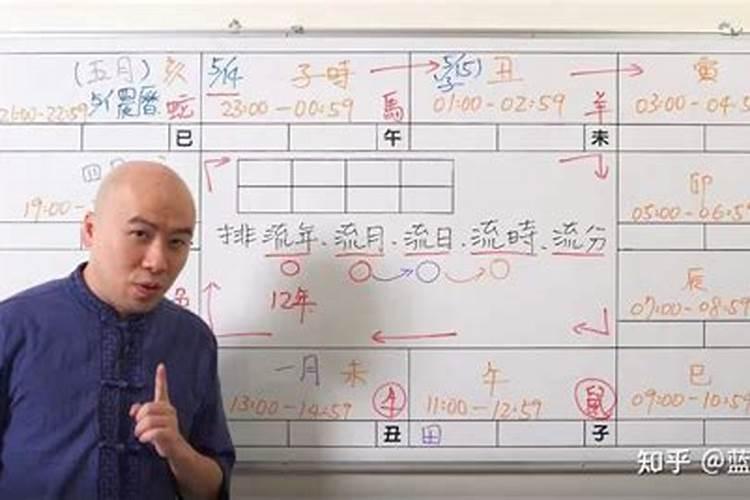 (五月) 亥 5/14 子時 5/15) 丑 寅
21:00-22:59 5/1農曆 蛇 23:00-00:59 馬 子 01:00-02:59 羊 03:00-04:5
巳 午 未
四 卯
19:00- 05:00-06:5
排流年、流月、流日、流時、流分
12年 辰
07:00-08:59
一月 未 午 巳
13:00-14:59 牛 11:00-12:59 鼠 09:00-10:59
丑 田 子
知乎 @蓝